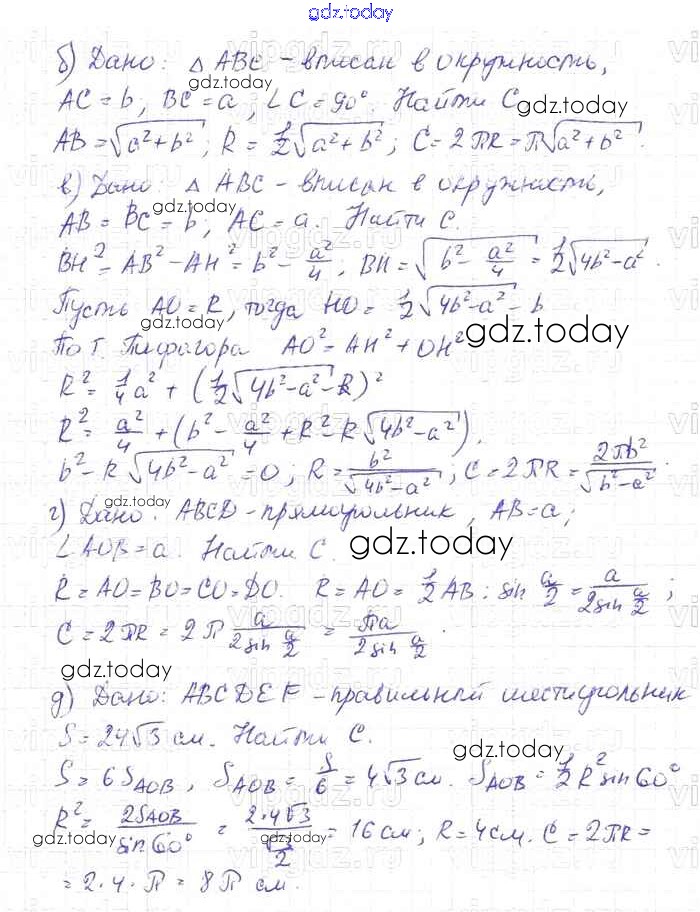 gdz.today
б) Дано: △ ABC - вписан в окружность,
AC = b, BC = a, ∠C = 90°. Найти C.
AB = √(a²+b²); R = 1/2 √(a²+b²); C = 2πR = π√(a²+b²)
в) Дано: △ ABC - вписан в окружность,
AB = BC = b, AC = a. Найти C.
BH² = AB² - AH² = b² - a²/4; BH = √(b² - a²/4) = 1/2 √(4b²-a²).
Пусть AO = R, тогда HO = 1/2 √(4b²-a²) - b
По т. Пифагора AO² = AH² + OH²
R² = 1/4 a² + (1/2 √(4b²-a²) - R)²
R² = a²/4 + (b² - a²/4 + R² - R√(4b²-a²)).
b² - R√(4b²-a²) = 0; R = b²/√(4b²-a²); C = 2πR = 2πb²/√(b²-a²).
г) Дано: ABCD - прямоугольник, AB = a;
∠AOB = a. Найти C.
R = AO = BO = CO = DO. R = AO = 1/2 AB : sin a/2 = a/(2 sin a/2);
C = 2πR = 2π a/(2 sin a/2) = πa/(2 sin a/2).
д) Дано: ABCDEF - правильный шестиугольник
S = 24√3 см. Найти C.
S = 6S_AOB, S_AOB = S/6 = 4√3 см. S_AOB = 1/2 R² sin 60°
R² = 2S_AOB/sin 60° = 2·4√3/(√3/2) = 16 см; R = 4 см. C = 2πR =
= 2·4·π = 8π см.